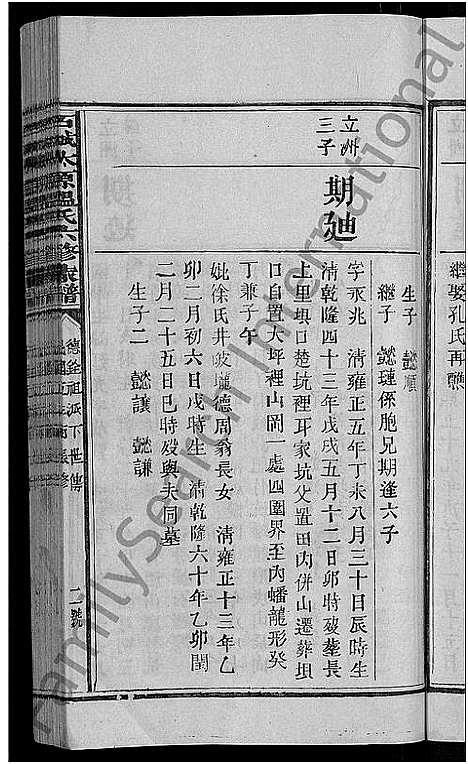 繼娶孔氏再醮
生子 懿順
繼子 懿璉係胞兄期逢六子
立洲
三子
期廸
字永兆 清雍正五年丁未八月三十日辰時生
清乾隆四十三年戊戌五月十二日卯時歿葬長
上里垻口楚坑裡耳家坑父置田內併山遷葬垻
口自置大坪裡山岡一處四圍界至內蟠龍形癸
丁兼子午
妣徐氏井陂壠德周翁長女 清雍正十三年乙
卯二月初六日戌時生 清乾隆六十年乙卯閏
二月二十五日巳時歿與夫同墓
生子二 懿讓 懿謙
石城木源溫氏六修族譜
德金祖派下世傳
二號
FamilySearch International